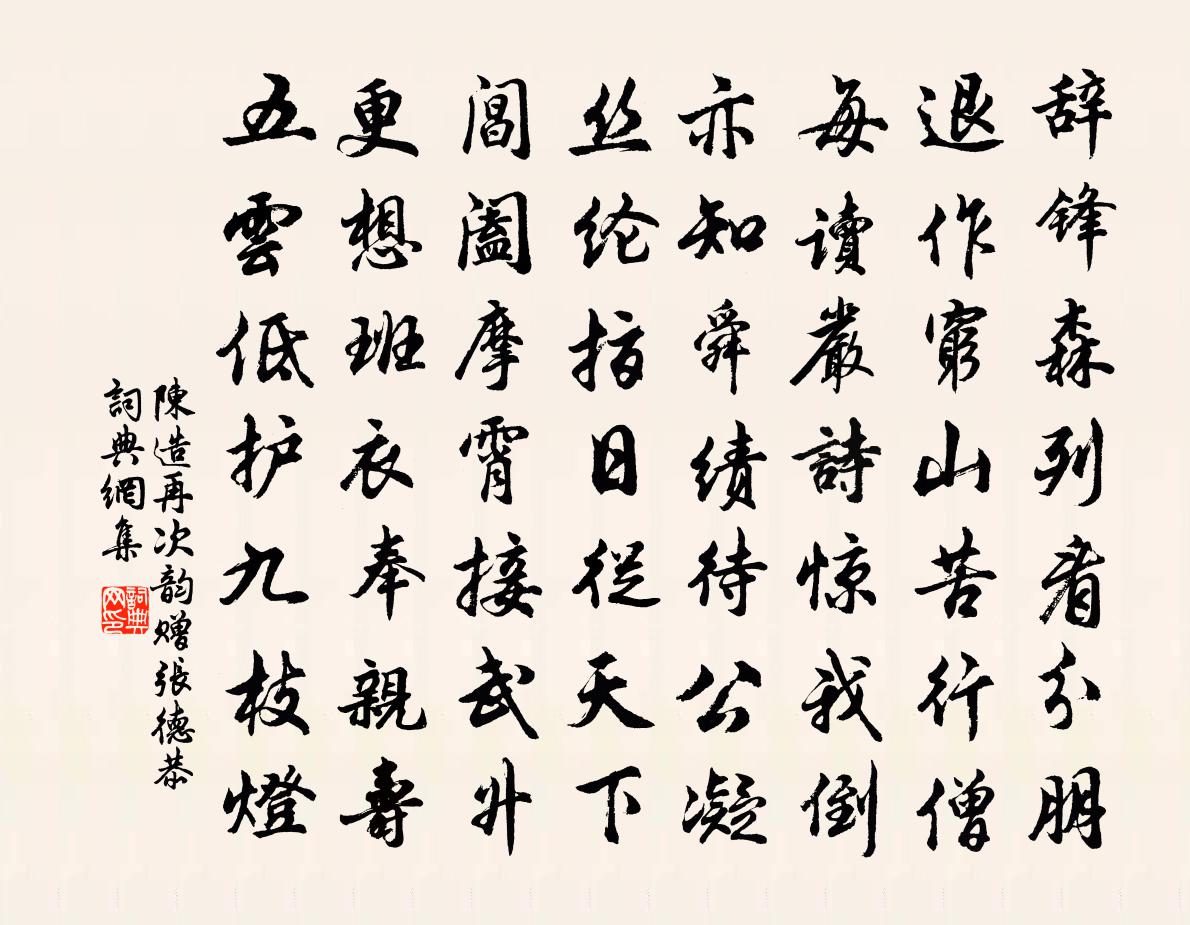 辞锋森列看分朋
退作窮山苦行僧
每讀嚴詩惊我倒
亦知舜绩待公凝
丝纶指日從天下
閶阖摩霄接武升
更想班衣奉親壽
五雲低护九枝燈
陳造再次韵赠張德恭
詞典網集
詞典网印